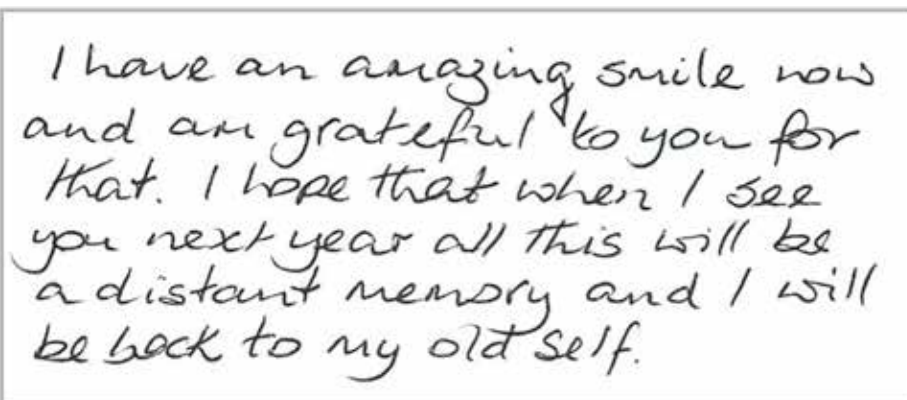 I have an amazing smile now
and am grateful to you for
that. I hope that when I see
you next year all this will be
a distant memory and I will
be back to my old self.